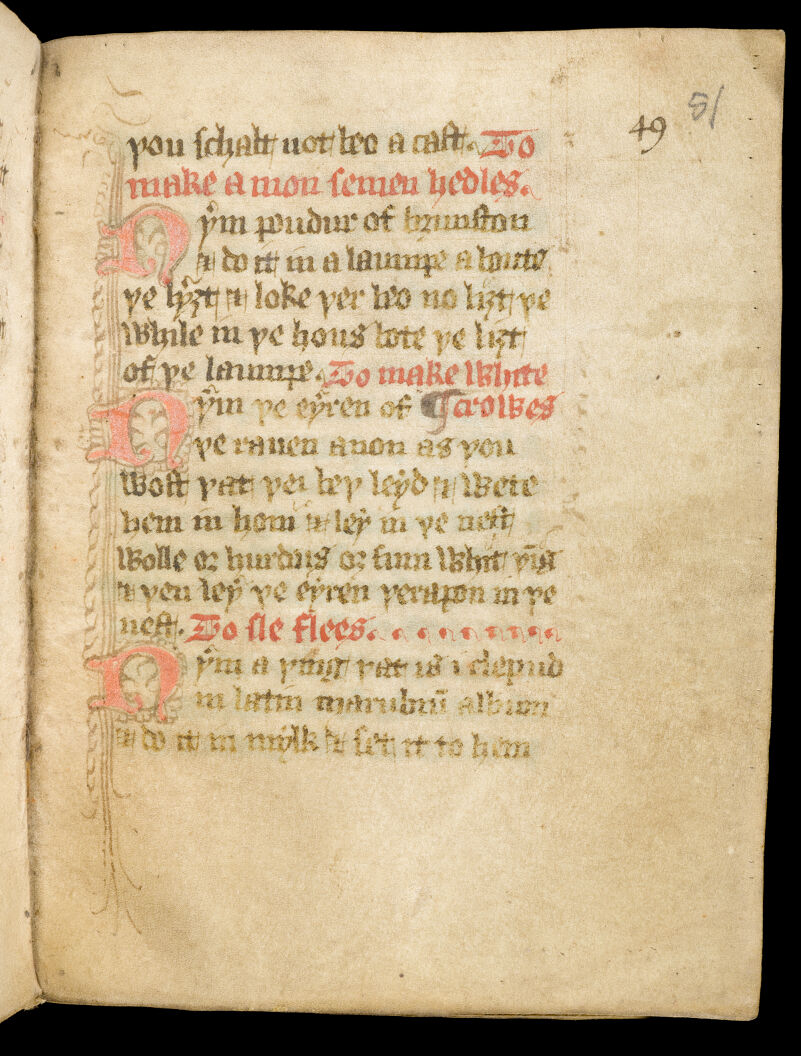 49
51
you schalt not beo a cast. To
make a mon semen hedles.
Nym poudur of brimston
& do it in a laumpe a boute
ye lyȝt & loke yer beo no liȝt ye
while in ye hous bote ye liȝt
of ye laumpe. To make white
Nym ye eyren of ¶ crowes
ye raven anon as you
wost yat yei bey leyd & wete
hem in hom & ley in ye nest
wolle or hurdus or sum whit yīg
& yen ley ye eyren yerapon in ye
nest. To sle flees.
Nym a ying yat is i clepud
in latin marubiū album
& do it in mylk & set it to hem